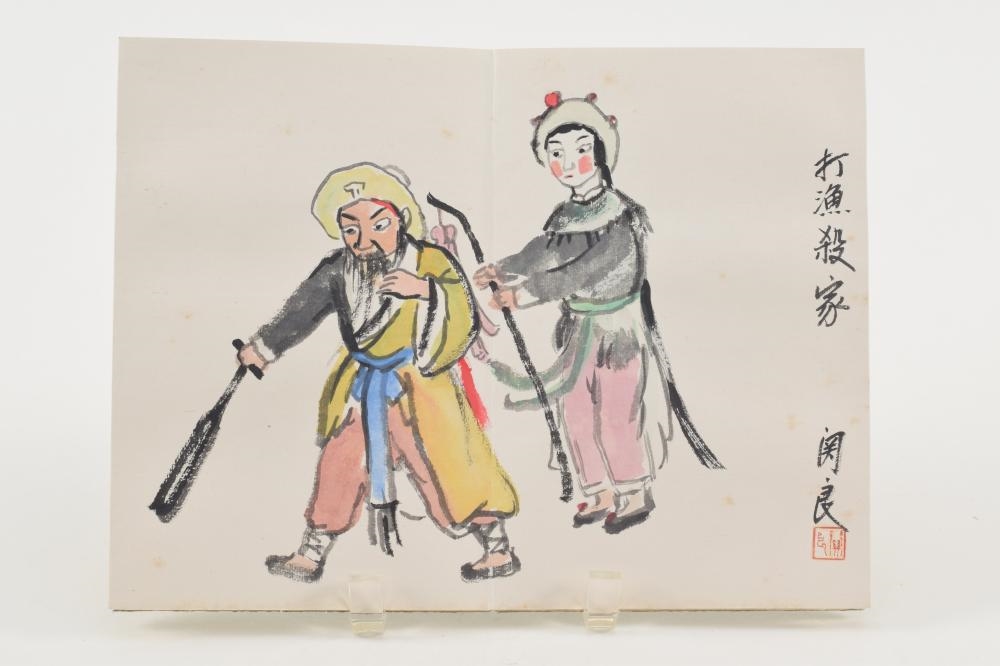 打漁殺家
関良